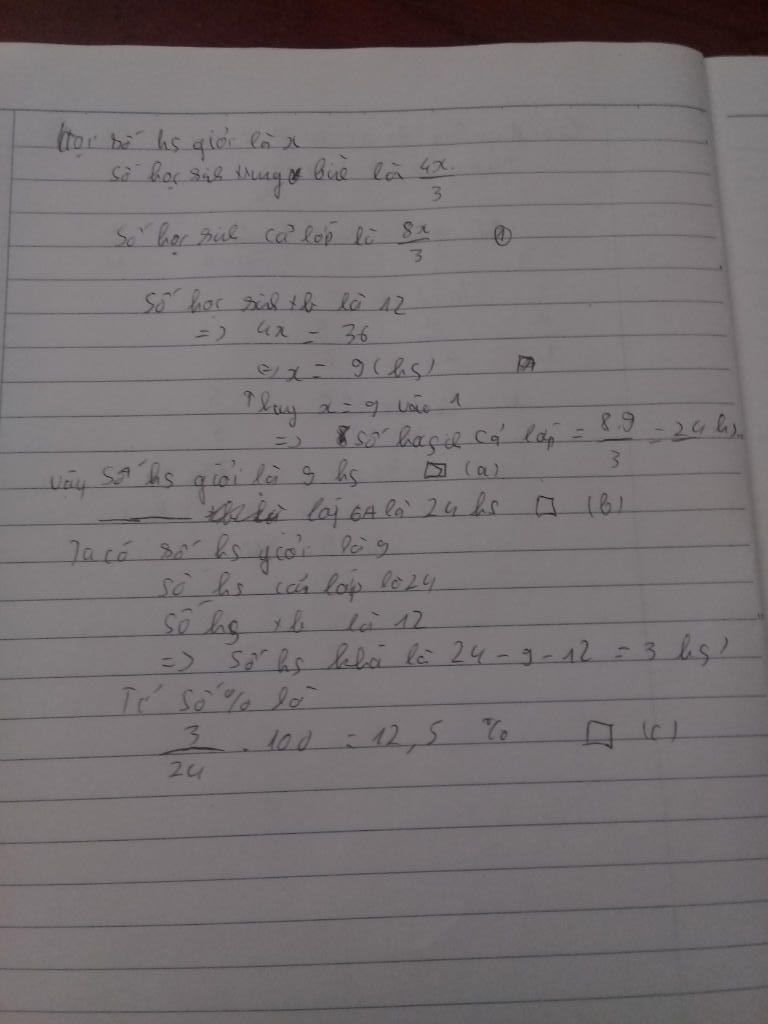 Gọi số hs giỏi là x
Số học sinh trung bình là 4x/3
Số học sinh cả lớp là 8x/3 ①
Số học sinh tb là 12
=> 4x = 36
<=> x = 9 (hs)
Thay x = 9 vào 1
=> số học sinh cả lớp = 8.9/3 = 24 hs
Vậy số hs giỏi là 9 hs □ (a)
lớp 6A là 24 hs □ (b)
Ta có số hs giỏi là 9
Số hs cả lớp là 24
Số hs tb là 12
=> Số hs khá là 24 - 9 - 12 = 3 hs
Tỉ số % là
3/24 . 100 = 12,5 % □ (c)